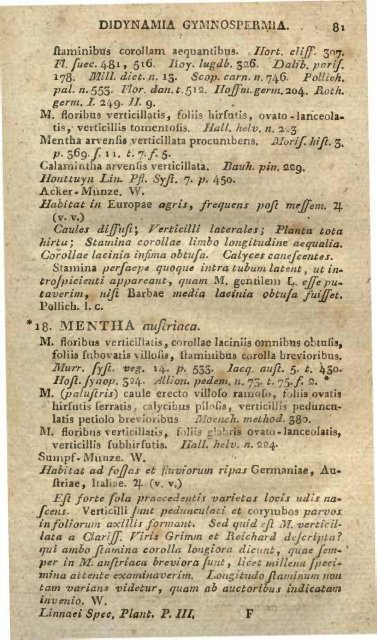 DIDYNAMIA GYMNOSPERMIA. 81
ſtaminibus corollam aequantibus. Hort. cliff. 307.
Fl. ſuec. 481, 516. Roy. lugdb. 326. Dalib. pariſ.
178. Mill. dict. n. 13. Scop. carn. n. 746. Pollich.
pal. n. 553. Flor. dan. t. 512. Hoffm. germ. 204. Roth.
germ. I. 249. II. 9.
M. floribus verticillatis, foliis hirſutis, ovato-lanceola-
tis, verticillis tomentoſis. Hall. helv. n.
Mentha arvenſis verticillata procumbens. Moriſ. hiſt. 3.
p. 369. ſ. 11. t. 7. f. 5.
Calamintha arvenſis verticillata. Bauh. pin. 229.
Houttuyn Lin. Pfl. Syſt. 7. p. 450.
Acker-Münze. W.
Habitat in Europae agris, frequens poſt meſſem. ♃
(v. v.)
Caules diffuſi; Verticilli laterales; Planta tota
hirta; Stamina corollae limbo longitudine aequalia.
Corollae lacinia infima obtuſa. Calyces caneſcentes.
Stamina perſaepe quoque intra tubum latent, ut in-
troſpicienti appareant, quam M. gentilem L. eſſe pu-
taverim, niſi Barbae media lacinia obtuſa fuiſſet.
Pollich. l. c.
*18. MENTHA auſtriaca.
M. floribus verticillatis, corollae laciniis omnibus obtuſis,
foliis ſubovatis villoſis, ſtaminibus corolla brevioribus.
Murr. ſyſt. veg. 14. p. 533. Jacq. auſt. 5. t. 430.
Hoſt. ſynop. 324. Allion. pedem. n. 73. t. 75. f. 2. *
M. (paluſtris) caule erecto villoſo ramoſo, foliis ovatis
hirſutis ſerratis, calycibus piloſis, verticillis peduncu-
latis petiolo brevioribus Moench. method. 380.
M. floribus verticillatis, foliis glabris ovato-lanceolatis,
verticillis ſubhirſutis. Hall. helv. n. 224.
Sumpf-Münze. W.
Habitat ad foſſas et fluviorum ripas Germaniae, Au-
ſtriae, Italiae. ♃ (v. v.)
Eſt forte ſola praecedentis varietas locis udis na-
ſcens. Verticilli ſunt pedunculati et corymbos parvos
in foliorum axillis formant. Sed quid eſt M. verticil-
lata a Clariſſ. Viris Grimm et Reichard deſcripta?
qui ambo ſtamina corolla longiora dicunt, quae ſem-
per in M. auſtriaca breviora ſunt, licet millena ſpeci-
mina attente examinaverim. Longitudo ſtaminum non
tam varians videtur, quam ab auctoribus indicatam
invenio. W.
Linnaei Spec. Plant. P. III. F